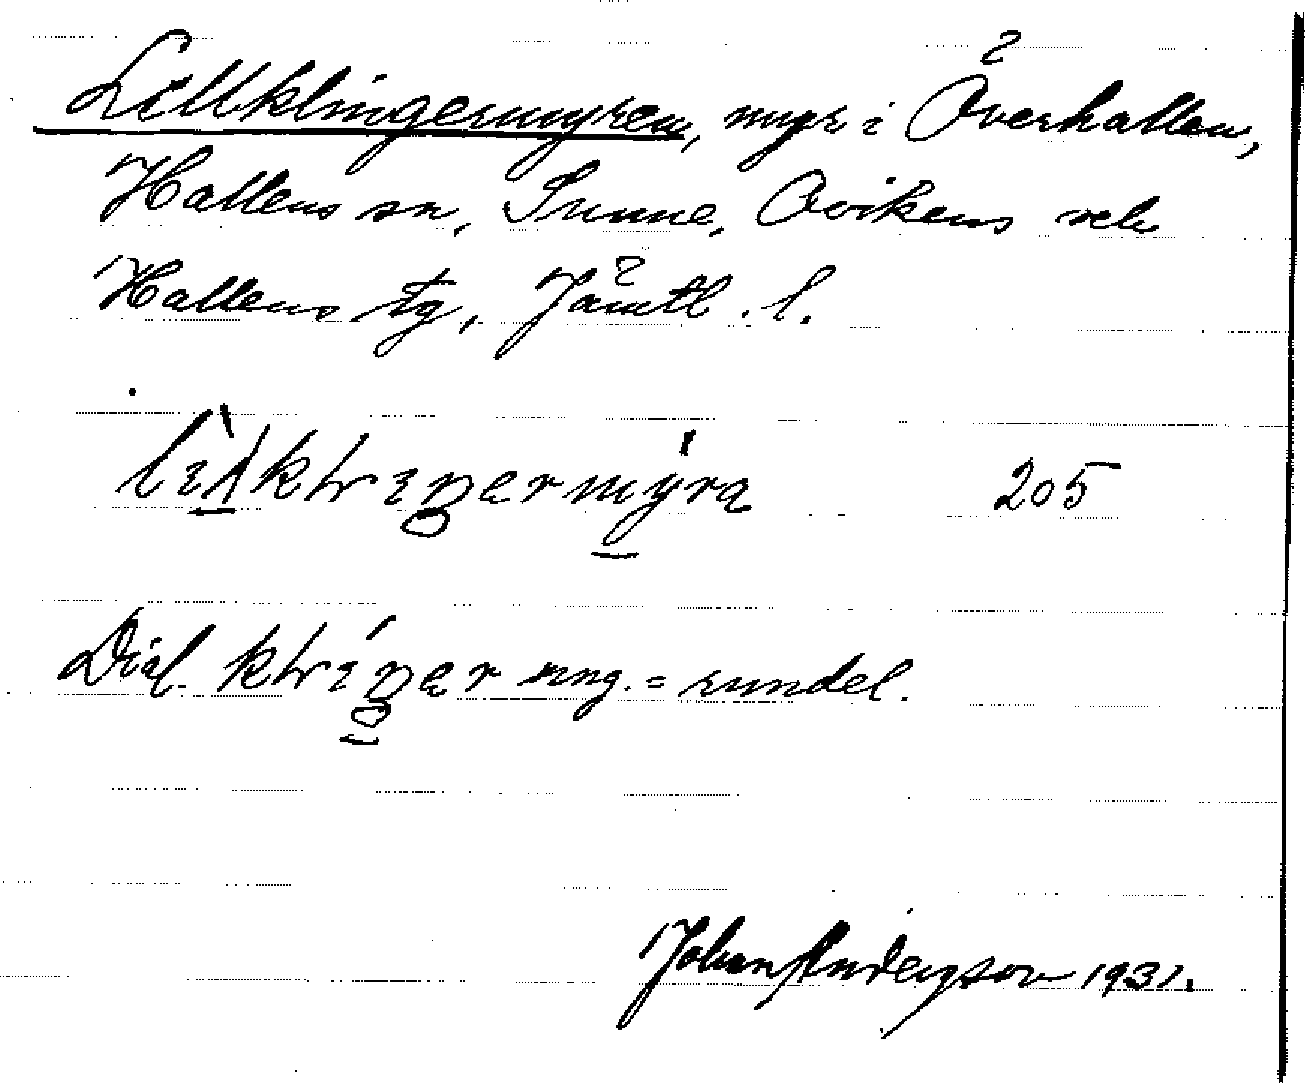 Lillklingermyren, myr i Överhallen,
Hallens sn, Sunne, Ovikens och
Hallens tg, Jämtl. l.
205
Dial. sing. = rundel.
Johan Anderson 1931.